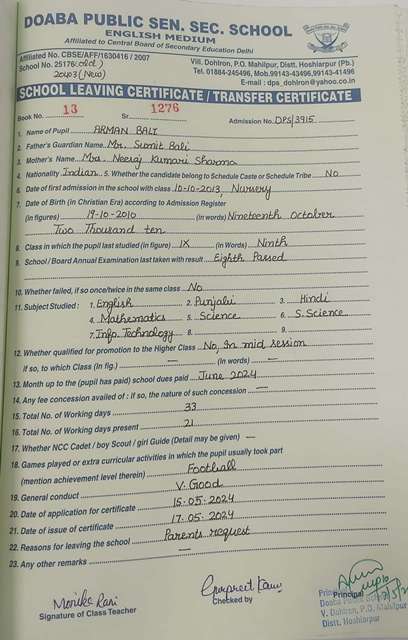 DOABA PUBLIC SEN. SEC. SCHOOL
ENGLISH MEDIUM
Affiliated to Central Board of Secondary Education Delhi
Affiliated No. CBSE/AFF/1630416 / 2007
School No. 25176 (old)
20403 (New)
Vill. Dohlron, P.O. Mahilpur, Distt. Hoshiarpur (Pb.)
Tel. 01884-245496, Mob.99143-43496,99143-41496
E-mail : dps_dohlron@yahoo.co.in
SCHOOL LEAVING CERTIFICATE / TRANSFER CERTIFICATE
Book No. 13 Sr. 1276 Admission No. DPS/3915
1. Name of Pupil ARMAN BALI
2. Father's Guardian Name Mr. Sumit Bali
3. Mother's Name Mrs. Neeraj Kumari Sharma
4. Nationality Indian 5. Whether the candidate belong to Schedule Caste or Schedule Tribe NO
6. Date of first admission in the school with class 10-10-2013, Nursery
7. Date of Birth (in Christian Era) according to Admission Register
(in figures) 19-10-2010 (in words) Nineteenth October
Two Thousand ten
8. Class in which the pupil last studied (in figure) IX (in Words) Ninth
9. School / Board Annual Examination last taken with result Eighth Passed
10. Whether failed, if so once/twice in the same class No
11. Subject Studied : 1. English 2. Punjabi 3. Hindi
4. Mathematics 5. Science 6. S.Science
7. Info. Technology 8. 9.
12. Whether qualified for promotion to the Higher Class No, In mid session
if so, to which Class (In fig.) — (In words) —
13. Month up to the (pupil has paid) school dues paid June 2024
14. Any fee concession availed of : if so, the nature of such concession —
15. Total No. of Working days 33
16. Total No. of Working days present 21
17. Whether NCC Cadet / boy Scout / girl Guide (Detail may be given) —
18. Games played or extra curricular activities in which the pupil usually took part
(mention achievement level therein) Football
19. General conduct V. Good
20. Date of application for certificate 15.05.2024
21. Date of issue of certificate 17.05.2024
22. Reasons for leaving the school Parents request
23. Any other remarks —
Monika Rani
Signature of Class Teacher
Gurpreet Kaur
Checked by
Principal
Doaba Public
V. Dohlron, P.O. Mahilpur
Distt. Hoshiarpur